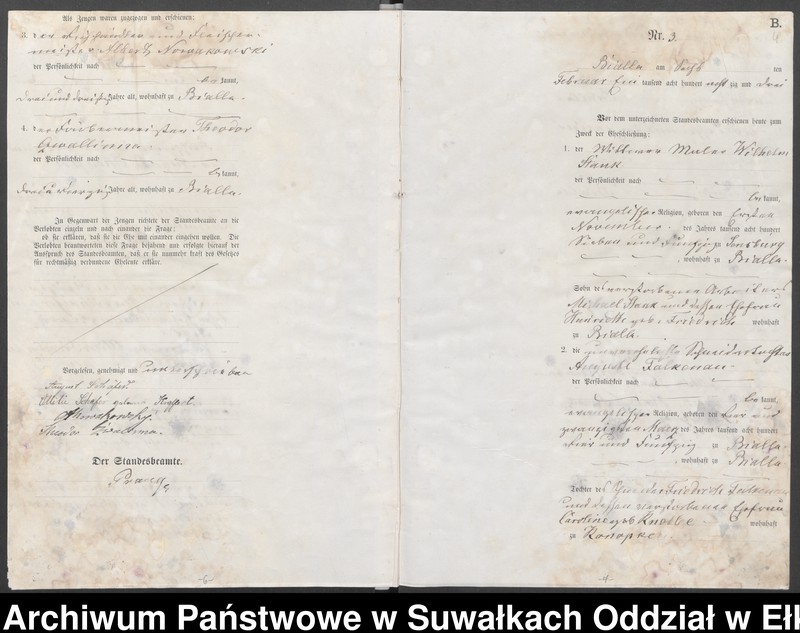 Als Zeugen waren zugezogen und erschienen:
3. der Fischhändler und Fleischer-
meister Albert Nowakowski
der Persönlichkeit nach
be kannt,
drei und dreißig Jahre alt, wohnhaft zu Bialla.
4. der Färbermeister Theodor
der Persönlichkeit nach
be kannt,
Jahre alt, wohnhaft zu Bialla.
In Gegenwart der Zeugen richtete der Standesbeamte an die
Verlobten einzeln und nach einander die Frage:
ob sie erklären, daß sie die Ehe mit einander eingehen wollen. Die
Verlobten beantworteten diese Frage bejahend und erfolgte hierauf der
Ausspruch des Standesbeamten, daß er sie nunmehr kraft des Gesetzes
für rechtmäßig verbundene Eheleute erkläre.
Vorgelesen, genehmigt und unterschrieben
August
geborene
ANowakowsky.
Theodor
Der Standesbeamte.
-6-
B.
Nr. 3.
Bialla am Sechs ten
Februar Ein tausend acht hundert acht zig und drei
Vor dem unterzeichneten Standesbeamten erschienen heute zum
Zweck der Eheschließung:
1. der Wittwer Maler Wilhelm
der Persönlichkeit nach
be kannt,
evangelischer Religion, geboren den Ersten
November des Jahres tausend acht hundert
Sieben und Fünfzig zu Sensburg
, wohnhaft zu Bialla.
Sohn des verstorbenen Arbeiters
Michael und dessen Ehefrau
Henriette geb. Friedrich wohnhaft
zu Bialla.
2. die unverehelichte Schneidertochter
Auguste Falkenau
der Persönlichkeit nach
be kannt,
evangelischer Religion, geboren den vier und
zwanzigsten März des Jahres tausend acht hundert
vier und Fünfzig zu Bialla
, wohnhaft zu Bialla
Tochter des Schneider Friedrich Falkenau
und dessen verstorbenen Ehefrau
Caroline geb. wohnhaft
zu Konopken.
-4-
Archiwum Państwowe w Suwałkach Oddział w Ełk